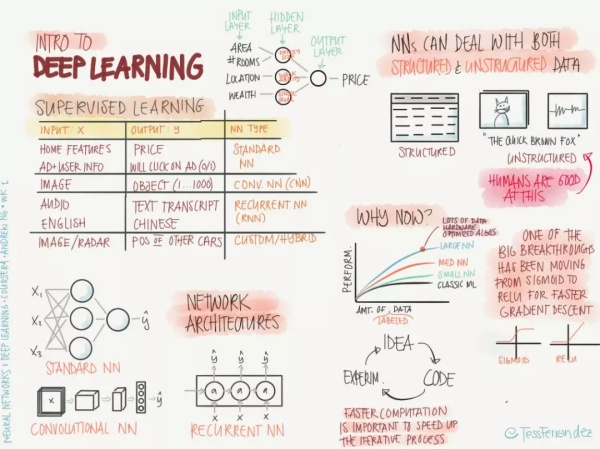 INTRO TO
DEEP LEARNING
INPUT LAYER
HIDDEN LAYER
OUTPUT LAYER
AREA
#ROOMS
LOCATION
WEALTH
PRICE
SUPERVISED LEARNING
INPUT: X OUTPUT: y NN TYPE
HOME FEATURES PRICE STANDARD NN
AD+USER INFO WILL CLICK ON AD (0/1)
IMAGE OBJECT (1...1000) CONV. NN (CNN)
AUDIO TEXT TRANSCRIPT RECURRENT NN (RNN)
ENGLISH CHINESE
IMAGE/RADAR POS OF OTHER CARS CUSTOM/HYBRID
X1
X2
X3
ŷ
STANDARD NN
NETWORK
ARCHITECTURES
X
ŷ
CONVOLUTIONAL NN
ŷ ŷ ŷ
a a a
X X X
RECURRENT NN
NNs CAN DEAL WITH BOTH
STRUCTURED & UNSTRUCTURED DATA
STRUCTURED
"THE QUICK BROWN FOX"
UNSTRUCTURED
HUMANS ARE GOOD
AT THIS
WHY NOW?
LOTS OF DATA
HARDWARE
OPTIMIZED ALGOS
LARGE NN
MED NN
SMALL NN
CLASSIC ML
PERFORM.
AMT. OF DATA
LABELED
ONE OF THE
BIG BREAKTHROUGHS
HAS BEEN MOVING
FROM SIGMOID TO
RELU FOR FASTER
GRADIENT DESCENT
SIGMOID
RELU
IDEA
CODE
EXPERIM.
FASTER COMPUTATION
IS IMPORTANT TO SPEED UP
THE ITERATIVE PROCESS
NEURAL NETWORKS & DEEP LEARNING • COURSERA • ANDREW NG • WK 1
@TessFerrandez